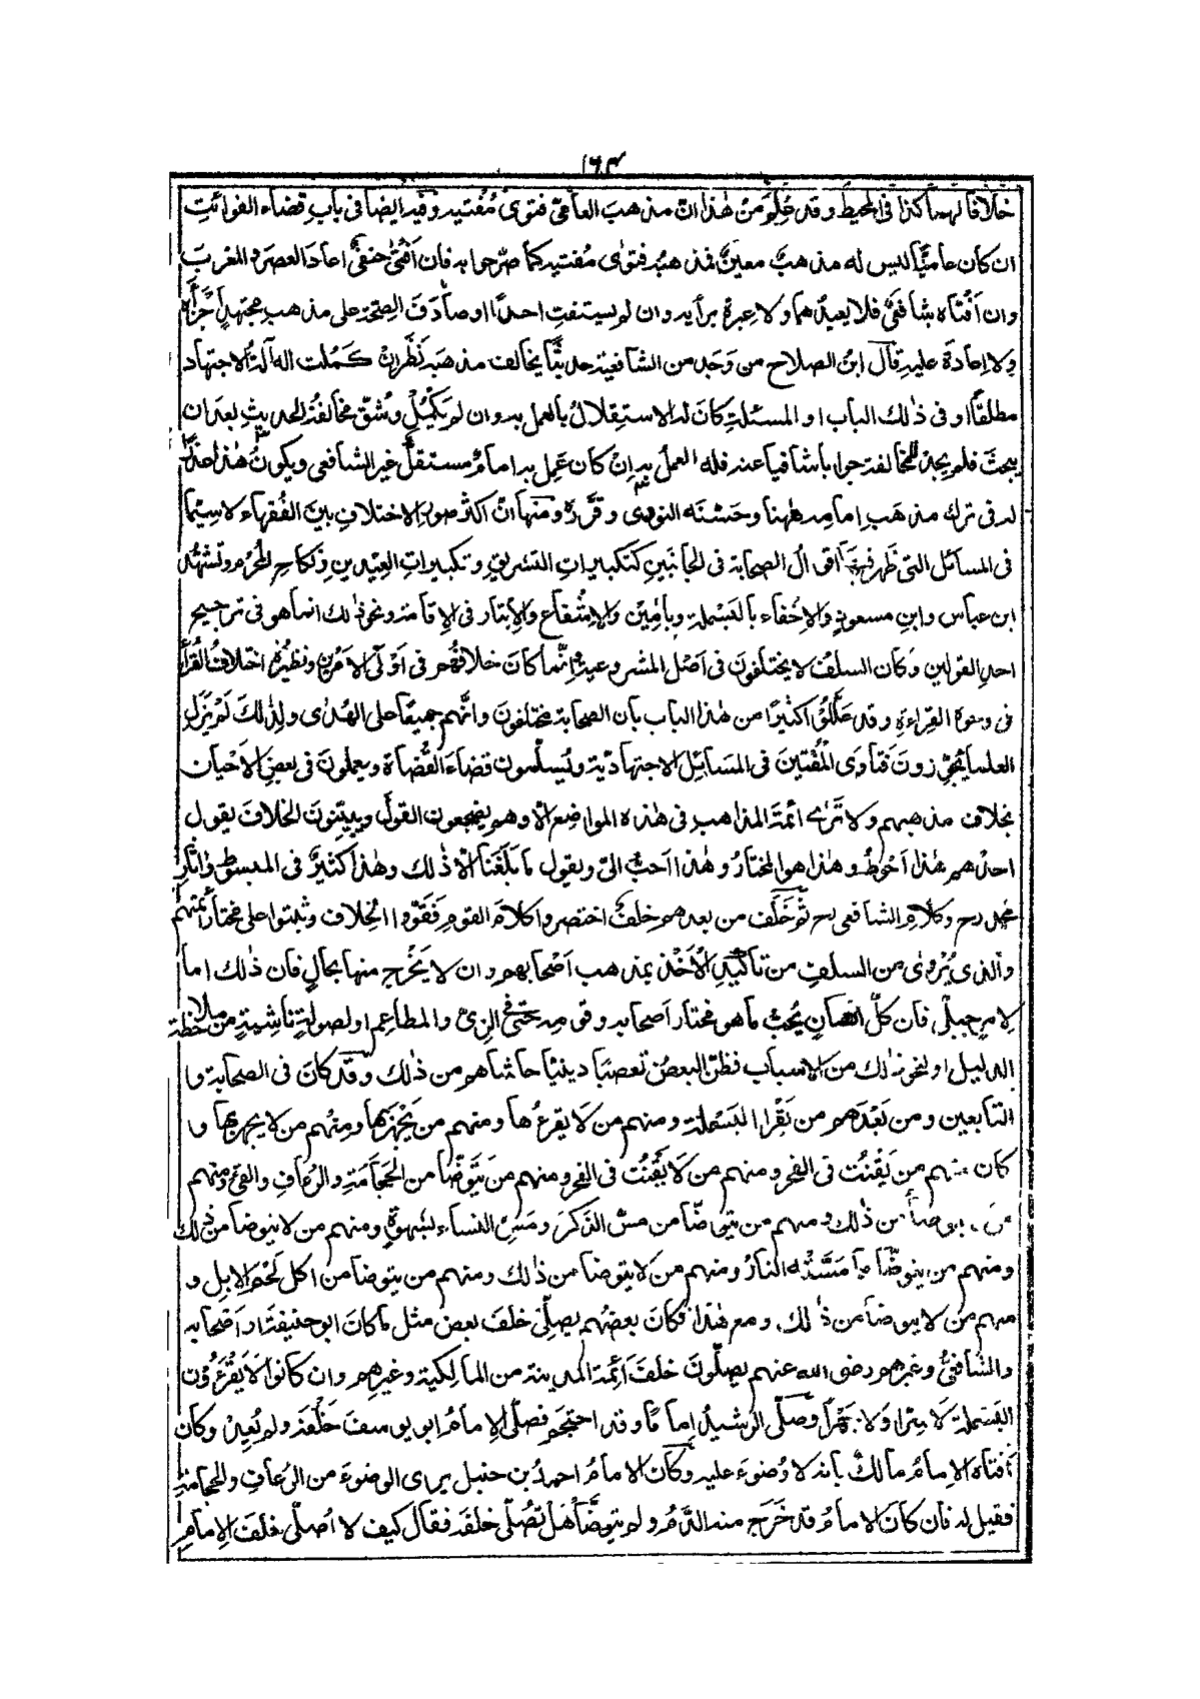 ١٦٣
خلافا لهما كذا فى المحيط وقد عُلِمَ من هٰذا انّ مذهب العامّى فتوى مُفتيه وفيه ايضا فى باب قضاء الفوائتِ
ان كان عامّيًّا ليس له مذهبٌ معينٌ فمذهبُه فتوٰى مفتيه كما صرّحوا به فان اَفتىٰ حنفىٌّ اعادَ العصرَ والمغربَ
وان اَفتاه شافعىٌّ فلا يعيدُهما ولا عِبرةَ برأيه وان لم يستفتِ احدًا او صادَفَ الصِحّةَ على مذهبِ مجتهدٍ اَجْزَأَه
ولا اِعادةَ عليهِ قال ابنُ الصلاحِ من وَجَد من الشافعية حديثًا يخالف مذهبَه نَظَر اِنْ كَمُلت له آلةُ الاجتهاد
مطلقًا او فى ذٰلك الباب او المسئلةِ كانَ له الاستقلالُ بالعمل به وان لم تَكْمُلْ وشُقّ مخالفةُ الحديثِ بعدَ ان
يبحثَ فلم يجد للمخالفة جوابا شافيا عنه فله العملُ به اِنْ كان عَمِل به امامٌ مستقلٌّ غيرُ الشافعى ويكونُ هٰذا عذرًا
له فى ترك مذهبِ اِمامه هٰهنا وحَسّنَه النووى وقرَّرَه ومنها انّ اكثرَ صورِ الاختلافِ بين الفُقَهاء لاسيّما
فى المسائل التى ظَهر فيها اَقوالُ الصحابة فى الجانبَينِ كتكبيراتِ التشريقِ وتكبيراتِ العِيدينِ ونكاحِ المُحرِم وتشهّدِ
ابنِ عباس وابنِ مسعودٍ والاِخفاء بالبَسْملة وباٰمِيْن والاِشْفاعِ والاِيتارِ فى الاقامة ونحو ذٰلك انما هو فى ترجيح
احدِ القولينِ وكان السلفُ لا يختلفونَ فى اَصْلِ المشروعيةِ وانّما كانَ خلافُهم فى اَوْلَى الاَمرينِ ونظيرُه اختلافُ القُرّاءِ
فى وجوه القراءةِ وقد عَلّلُوا كثيرًا من هٰذا الباب بان الصحابة مختلفونَ وانّهم جميعًا على الهُدٰى ولِذٰلكَ لَمْ يَزَلِ
العلماءُ يُجَوِّزونَ فَتاوَى المُفتينَ فى المسائِلِ الاجتهاديّة ويُسلّمون قضاءَ القُضاةِ ويعملونَ فى بعضِ الاَحْيان
بخلاف مذهبهم ولا تَرٰى ائمّةَ المذاهب فى هٰذه المواضِع الّا وهم يضجعون القولَ ويبيّنونَ الخلافَ يقول
احدُهم هٰذا اَحْوطُ وهٰذا هو المختارُ وهٰذا احبُّ الىّ ويقول ما بَلَغَنا الّا ذٰلك وهٰذا كثيرٌ فى المبسوط واٰثارِ
محمد رح وكلامِ الشافعى رح ثم خَلَف من بعدهم خلفٌ اختصروا كلامَ القوم فَقَوّوا الخِلاف وثبتوا على مختارِ ائمّتهم
والذى يُروٰى من السلف من تاكيدِ الاَخْذِ بمذهب اَصْحابهم وان لا يَخْرُج منها بحالٍ فان ذٰلك امّا
لامرٍ جِبِلّى فان كلّ انسانٍ يُحبّ ما هو مختار اَصحابه وقومِه حتى فى الزىّ والمطاعم او لصولةٍ ناشيةٍ من ملاحظة
الدليل او لنحو ذٰلك من الاسباب فظنّ البعضُ تعصبًا دينيًّا حاشاهم من ذٰلك وقد كانَ فى الصحابة و
التابعين ومن بَعْدَهم من يَقرأ البَسْملةَ ومنهم من لا يقرءُها ومنهم من يَجْهَرُ بها ومنهم من لا يجهر بها و
كان منهم من يَقْنُت فى الفجر ومنهم من لا يَقْنُت فى الفجر ومنهم من يَتَوضّأ من الحَجامَةِ والرُعافِ والقىءِ ومنهم
من لا يتوضأ من ذٰلك ومنهم من يتوضّأ من مسِّ الذَكرِ ومَسِّ النساء بشهوةٍ ومنهم من لا يتوضأ من ذٰلك
ومنهم من يتوضّأ مما مَسَّتْه النارُ ومنهم من لا يتوضأ من ذٰلك ومنهم من يتوضأ من اكل لَحْمِ الابِلِ و
منهم من لا يتوضأ من ذٰلك ومع هٰذا فكانَ بعضُهم يصلّى خلفَ بعض مثل ما كانَ ابو حنيفةَ او اَصْحابه
والشافعىُّ وغيرهم رضى الله عنهم يصلّونَ خلفَ اَئِمّة المدينة من المالكية وغيرِهم وان كانوا لا يَقْرَءُوْن
البَسْملةَ لا سِرًّا ولا جَهْرًا وصلّى الرشيدُ اِمامًا وقد احتجم فصلّى الامامُ ابو يوسفَ خَلْفَه ولم يُعِدْ وكان
اَفتاه الامامُ مالكٌ بانه لا وُضوءَ عليه وكانَ الامامُ احمدُ بن حنبل يرى الوضوءَ من الرُعافِ والحِجامةِ
فقيل له فان كانَ الامامُ قد خَرَجَ منه الدَّمُ ولم يتوضّأ هل تُصلّى خلفَه فقال كيف لا اُصلّى خلفَ الامامِ